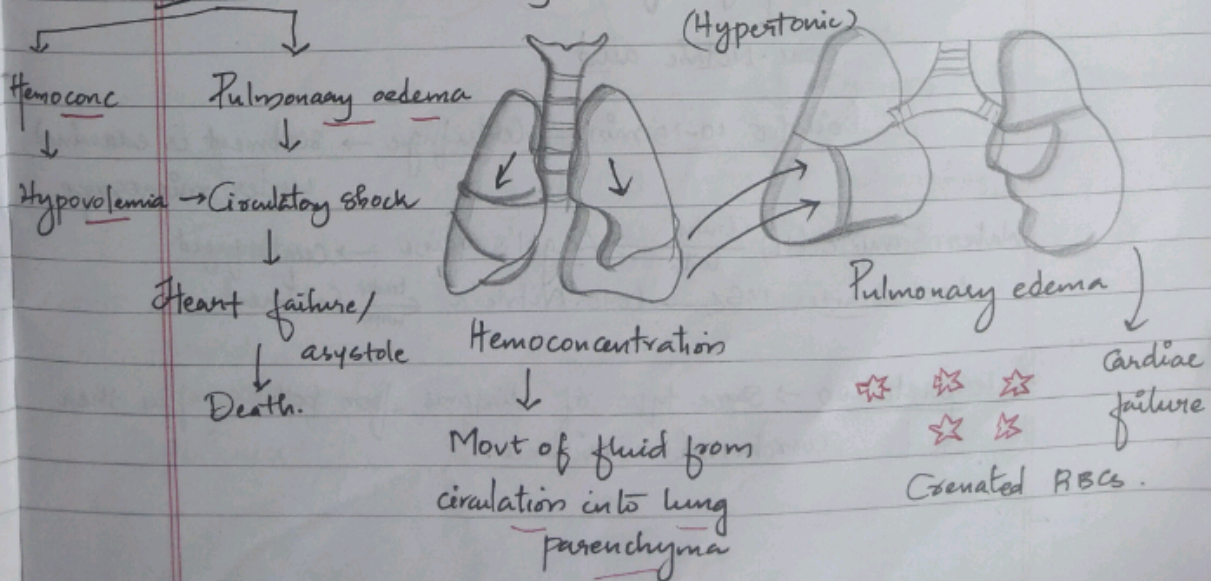 (Hypertonic)
Hemoconc
Pulmonary oedema
Hypovolemia → Circulatory shock
Heart failure/
asystole
Death.
Hemoconcentration
Movt of fluid from
circulation into lung
parenchyma
Pulmonary edema
Cardiac
failure
Crenated RBCs.